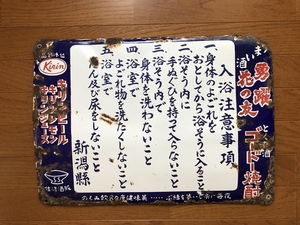 勇躍
花の友
ゴード焼酎
入浴注意事項
一、身体のよごれを
おとしてから浴そうに入ること
二、浴そう内に
手ぬぐひを持って入らないこと
三、浴そう内で
身体を洗わないこと
四、浴室で
よごれ物を洗たくしないこと
五、浴室で
たん及び尿をしないこと
新潟縣
Kirin
キリンビール
キリンレモン
キリンジュース